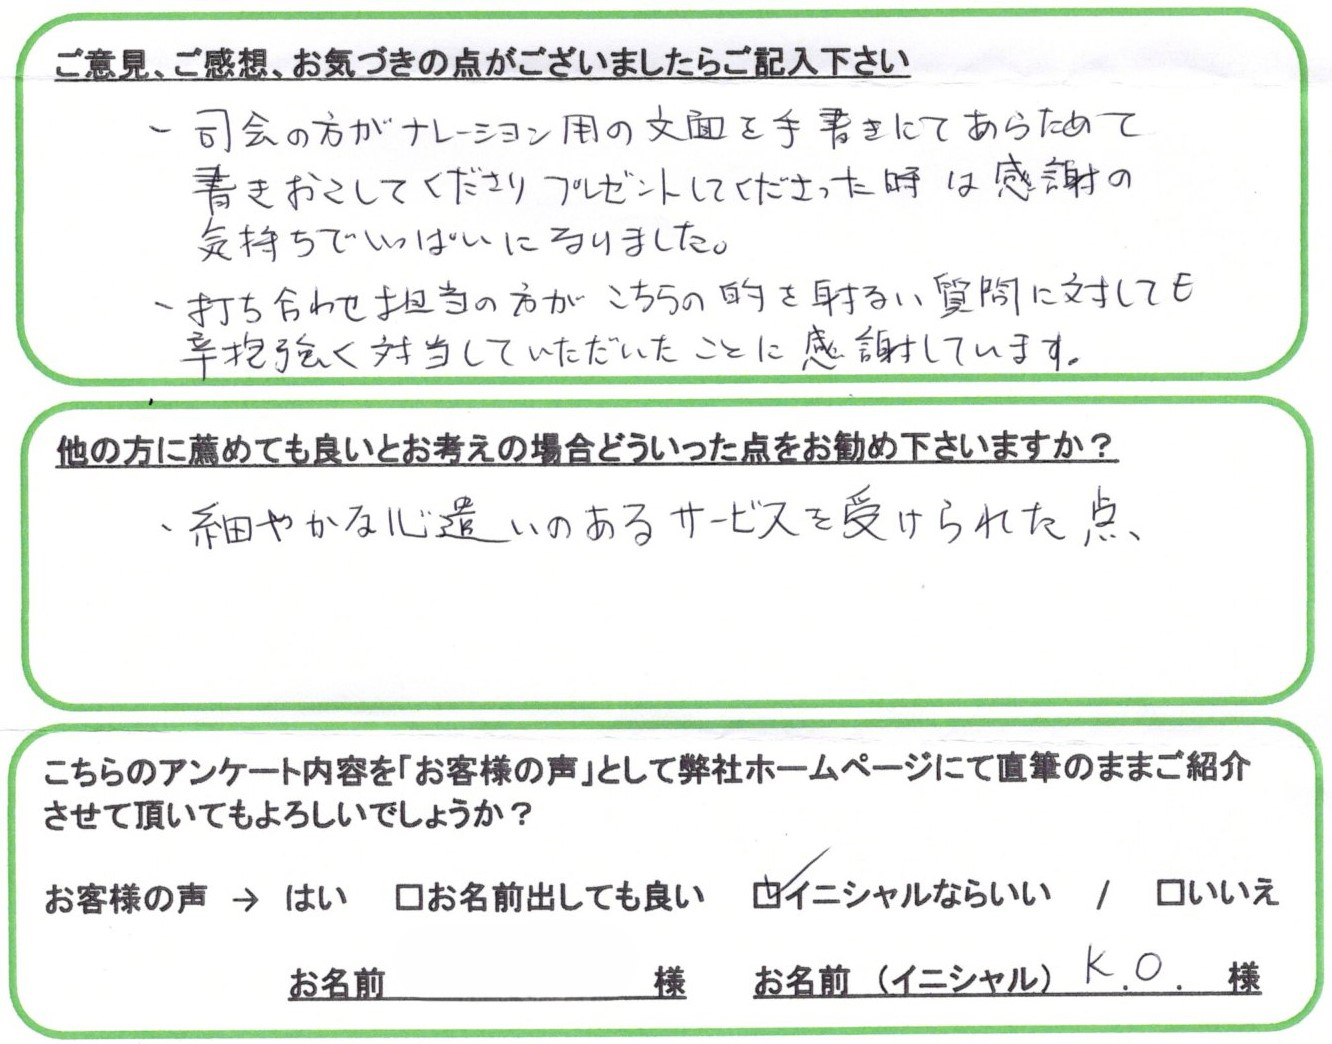 ご意見、ご感想、お気づきの点がございましたらご記入下さい
・司会の方がナレーション用の文面を手書きにてあらためて
書きおこしてくださり プレゼントしてくださった時は感謝の
気持ちでいっぱいになりました。
・打ち合わせ担当の方がこちらの的を射ない質問に対しても
辛抱強く対当していただいたことに感謝しています。
他の方に薦めても良いとお考えの場合どういった点をお勧め下さいますか？
・細やかな心遣いのあるサービスを受けられた点、
こちらのアンケート内容を「お客様の声」として弊社ホームページにて直筆のままご紹介
させて頂いてもよろしいでしょうか？
お客様の声 → はい □お名前出しても良い ☑イニシャルならいい / □いいえ
お名前 様 お名前（イニシャル） K.O. 様